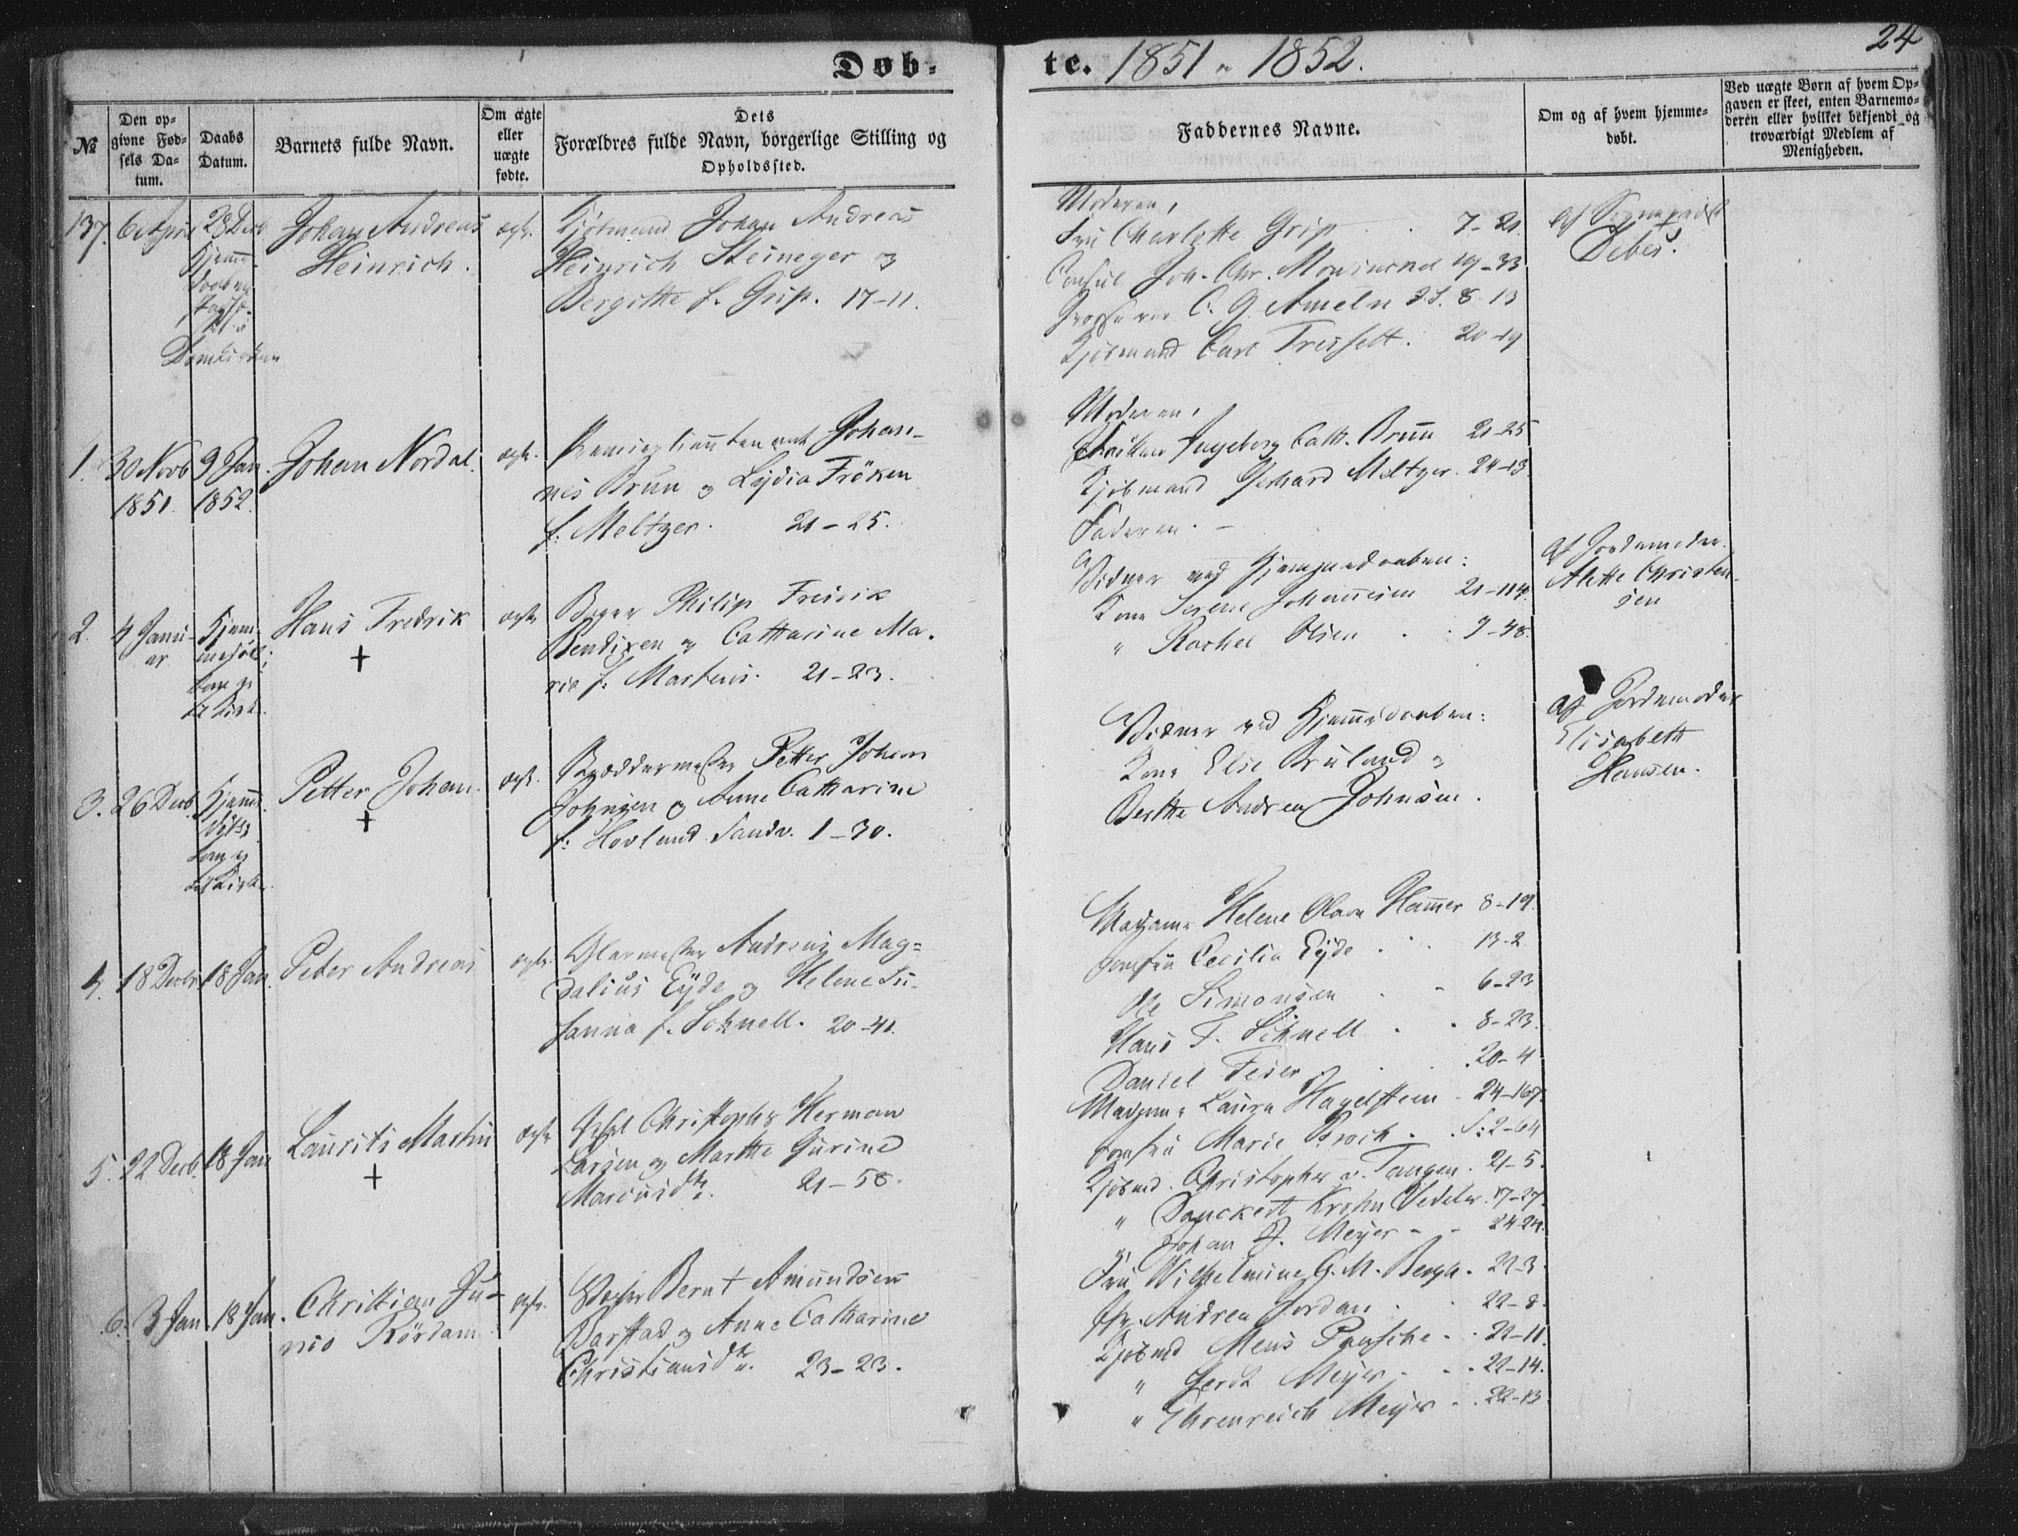 24
Døb-
te. 1851 " 1852.
№
Den op-
givne Fød-
sels Da-
tum.
Daabs
Datum.
Barnets fulde Navn.
Om ægte
eller
uægte
fødte.
Dets
Forældres fulde Navn, borgerlige Stilling og
Opholdssted.
Faddernes Navne.
Om og af hvem hjemme-
døbt.
Ved uægte Børn af hvem Op-
gaven er skeet, enten Barnemo-
deren eller hvilket bekjendt og
troværdigt Medlem af
Menigheden.
137. 6 April 28 Decb
Domkirken
Johan Andreas
Heinrich.
ægte.
Kjøbmand Johan Andreas
Heinrich Steineger og
Bergitthe f. Grip. 17-11.
Moderen,
Fru Charlotte Grip 7-21.
Consul Joh. Chr. 19-33
C. G. Ameln 8-13
Kjøbmand Carl 20-19
af
Debes.
1. 30 Novb
1851.
9 Jan.
1852.
Johan Nordal.
ægte.
Premierlieutenant Johan-
nes Brun og Lydia Fröken
f: Meltzer. 21-25.
Moderen,
Frøken Ingeborg Cath. Brun 21-25
Kjøbmand Gerhard Meltzer. 24-13.
Faderen. -
2. 4 Janu-
ar
Hans Fredrik
+
ægte
Philip Fredrik
Bendixen og Catharine Ma-
ria f: Martens. 21-23.
Vidner ved Hjemmedaaben:
Kone Serene Johannesen 21-114.
" Rachel Olsen 9-48.
af Jordemoder
Alette Christen-
sen
3. 26 Decb
Petter Johan
+
ægte.
Petter Johan
Johnsen og Anne Catharine
f: Hovland. Sandv. 1-30.
Vidner ved Hjemmedaaben:
Kone Else Bruland og
Berthe Andrea Johnsen.
af Jordemoder
Elisabeth
Hansen.
4. 18 Decb 18 Jan.
Peter Andreas
ægte.
Glarmester Andreas Mag-
dalius Eyde og Helene Su-
sanna f. Schnell. 20-41.
Madame Helene Olava Hammer 8-19.
Jomfru Cecilia Eyde 13-2
Ole Simonsen 6-23
Hans F. Schnell 8-23.
Daniel 20-4
5. 22 Decb. 18 Jan
Laurits Martin
+
ægte
Christopher Herman
Larsen og Marthe Gurine
Marcusdtr. 21-58.
Madame Laura Hagelsteen 24-167.
Jomfru Marie Broch 2-64
Kjøbmd. Christopher v. Tangen. 21-5.
" Danckert Krohn 17-27.
" Johan D. Meyer 24-24.
6. 3 Jan. 18 Jan.
Christian Ju-
nio Rördam
ægte.
Bernt Amundsen
Barstad og Anne Catharine
Christiansdtr. 23-23.
Fru Wilhelmine G. M. Bergh. 22-3.
Andrea Jordan 22-8.
Kjøbmd Mens 22-11.
" Gerdt Meyer 22-14.
" Ehrenreich Meyer 22-13